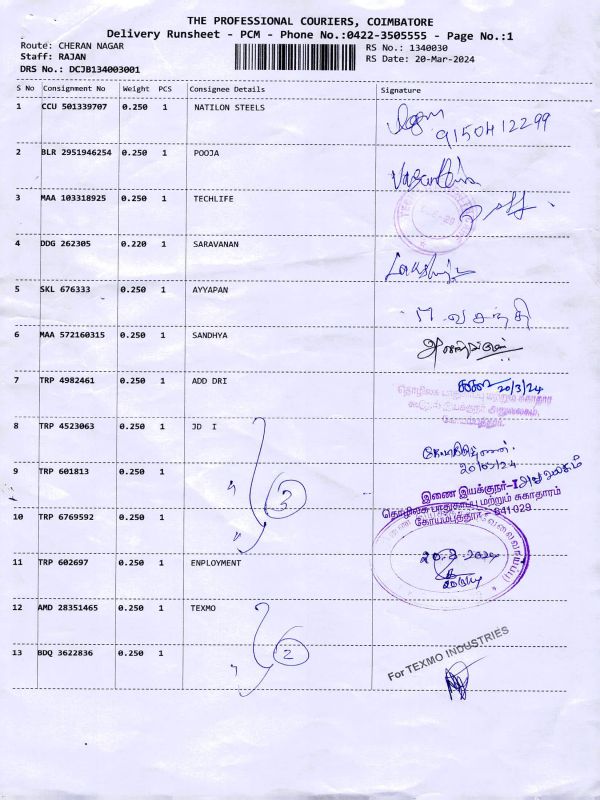 THE PROFESSIONAL COURIERS, COIMBATORE
Delivery Runsheet - PCM - Phone No.:0422-3505555 - Page No.:1
Route: CHERAN NAGAR
RS No.: 1340030
Staff: RAJAN
RS Date: 20-Mar-2024
DRS No.: DCJB134003001
S No Consignment No Weight PCS Consignee Details Signature
1 CCU 501339707 0.250 1 NATILON STEELS
9150412299
2 BLR 2951946254 0.250 1 POOJA
3 MAA 103318925 0.250 1 TECHLIFE
4 DDG 262305 0.220 1 SARAVANAN
5 SKL 676333 0.250 1 AYYAPAN
M. வசந்தி
6 MAA 572160315 0.250 1 SANDHYA
7 TRP 4982461 0.250 1 ADD DRI
20/3/24
தொழிலக பாதுகாப்பு மற்றும் சுகாதார
கோயம்புத்தூர்.
8 TRP 4523063 0.250 1 JD I
20/03/24
9 TRP 601813 0.250 1
" 3
இணை இயக்குநர்-I அலுவலகம்
தொழிலக பாதுகாப்பு மற்றும் சுகாதாரம்
கோயம்புத்தூர் - 641 029
10 TRP 6769592 0.250 1
"
11 TRP 602697 0.250 1 ENPLOYMENT
20-3-2024
12 AMD 28351465 0.250 1 TEXMO
13 BDQ 3622836 0.250 1
" 2
For TEXMO INDUSTRIES